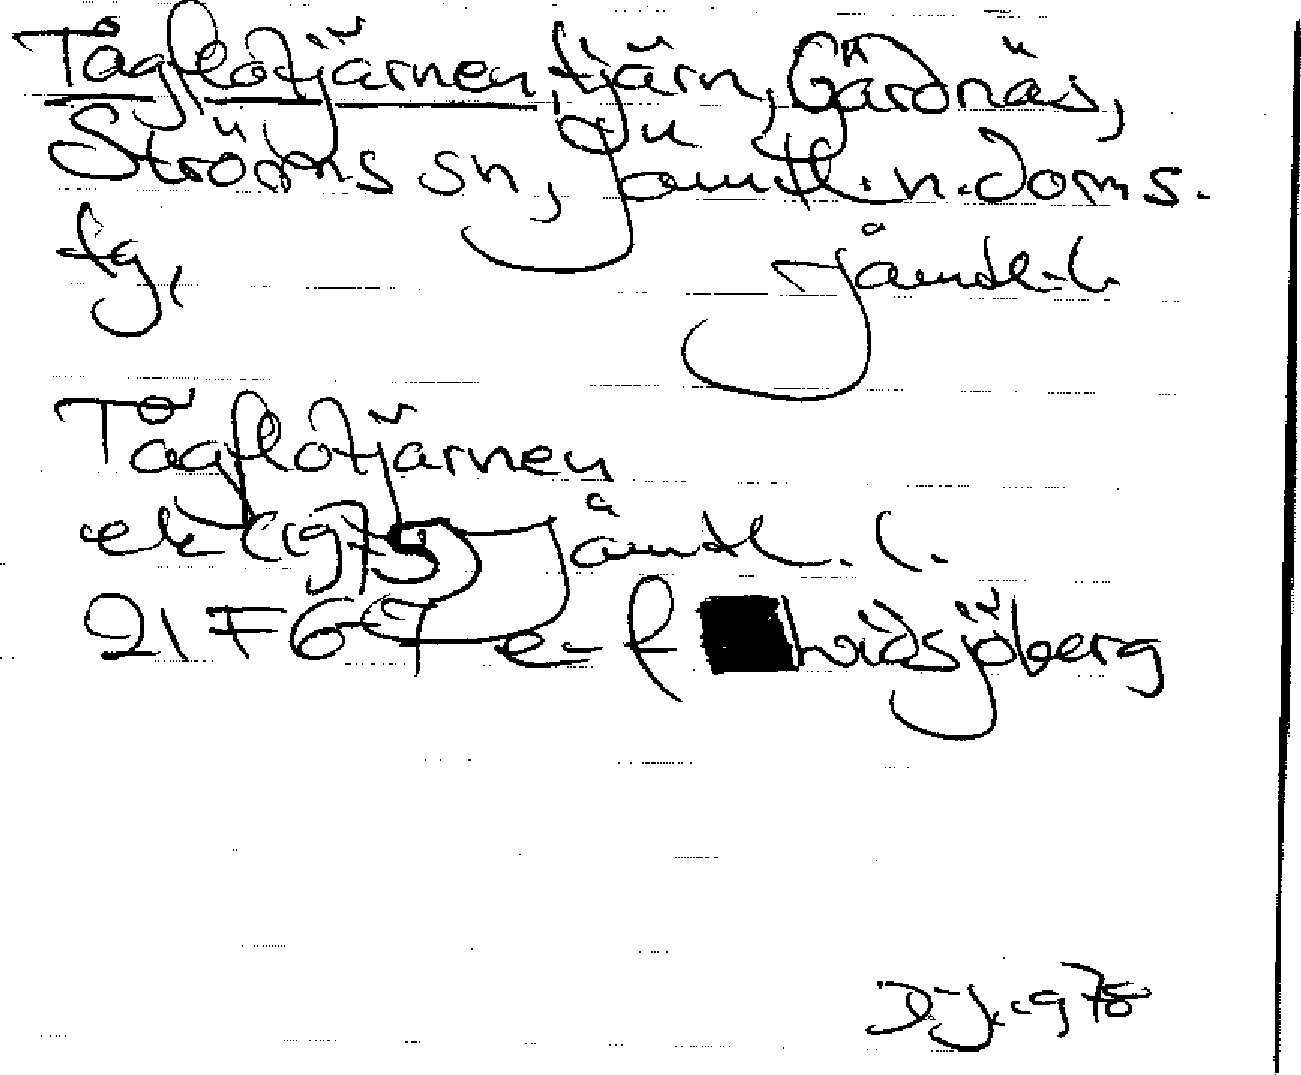 Tågflotjärnen, tjärn, Gärdnäs,
Ströms sn, Jämtl. n. doms.
tg, Jämtl. l.
Tågflotjärnen
ek (1975) Jämtl. l.
21F6f e-f Hvidsjöberg
D.J. 1978